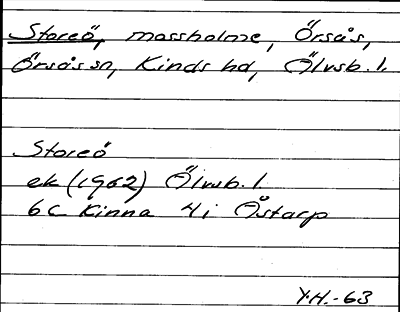 Storeö, mossholme, Örsås,
Örsås sn, Kinds hd, Älvsb. l.
Storeö
ek (1962) Älvsb. l
6c Kinna 4i Åstarp
Y.H.-63